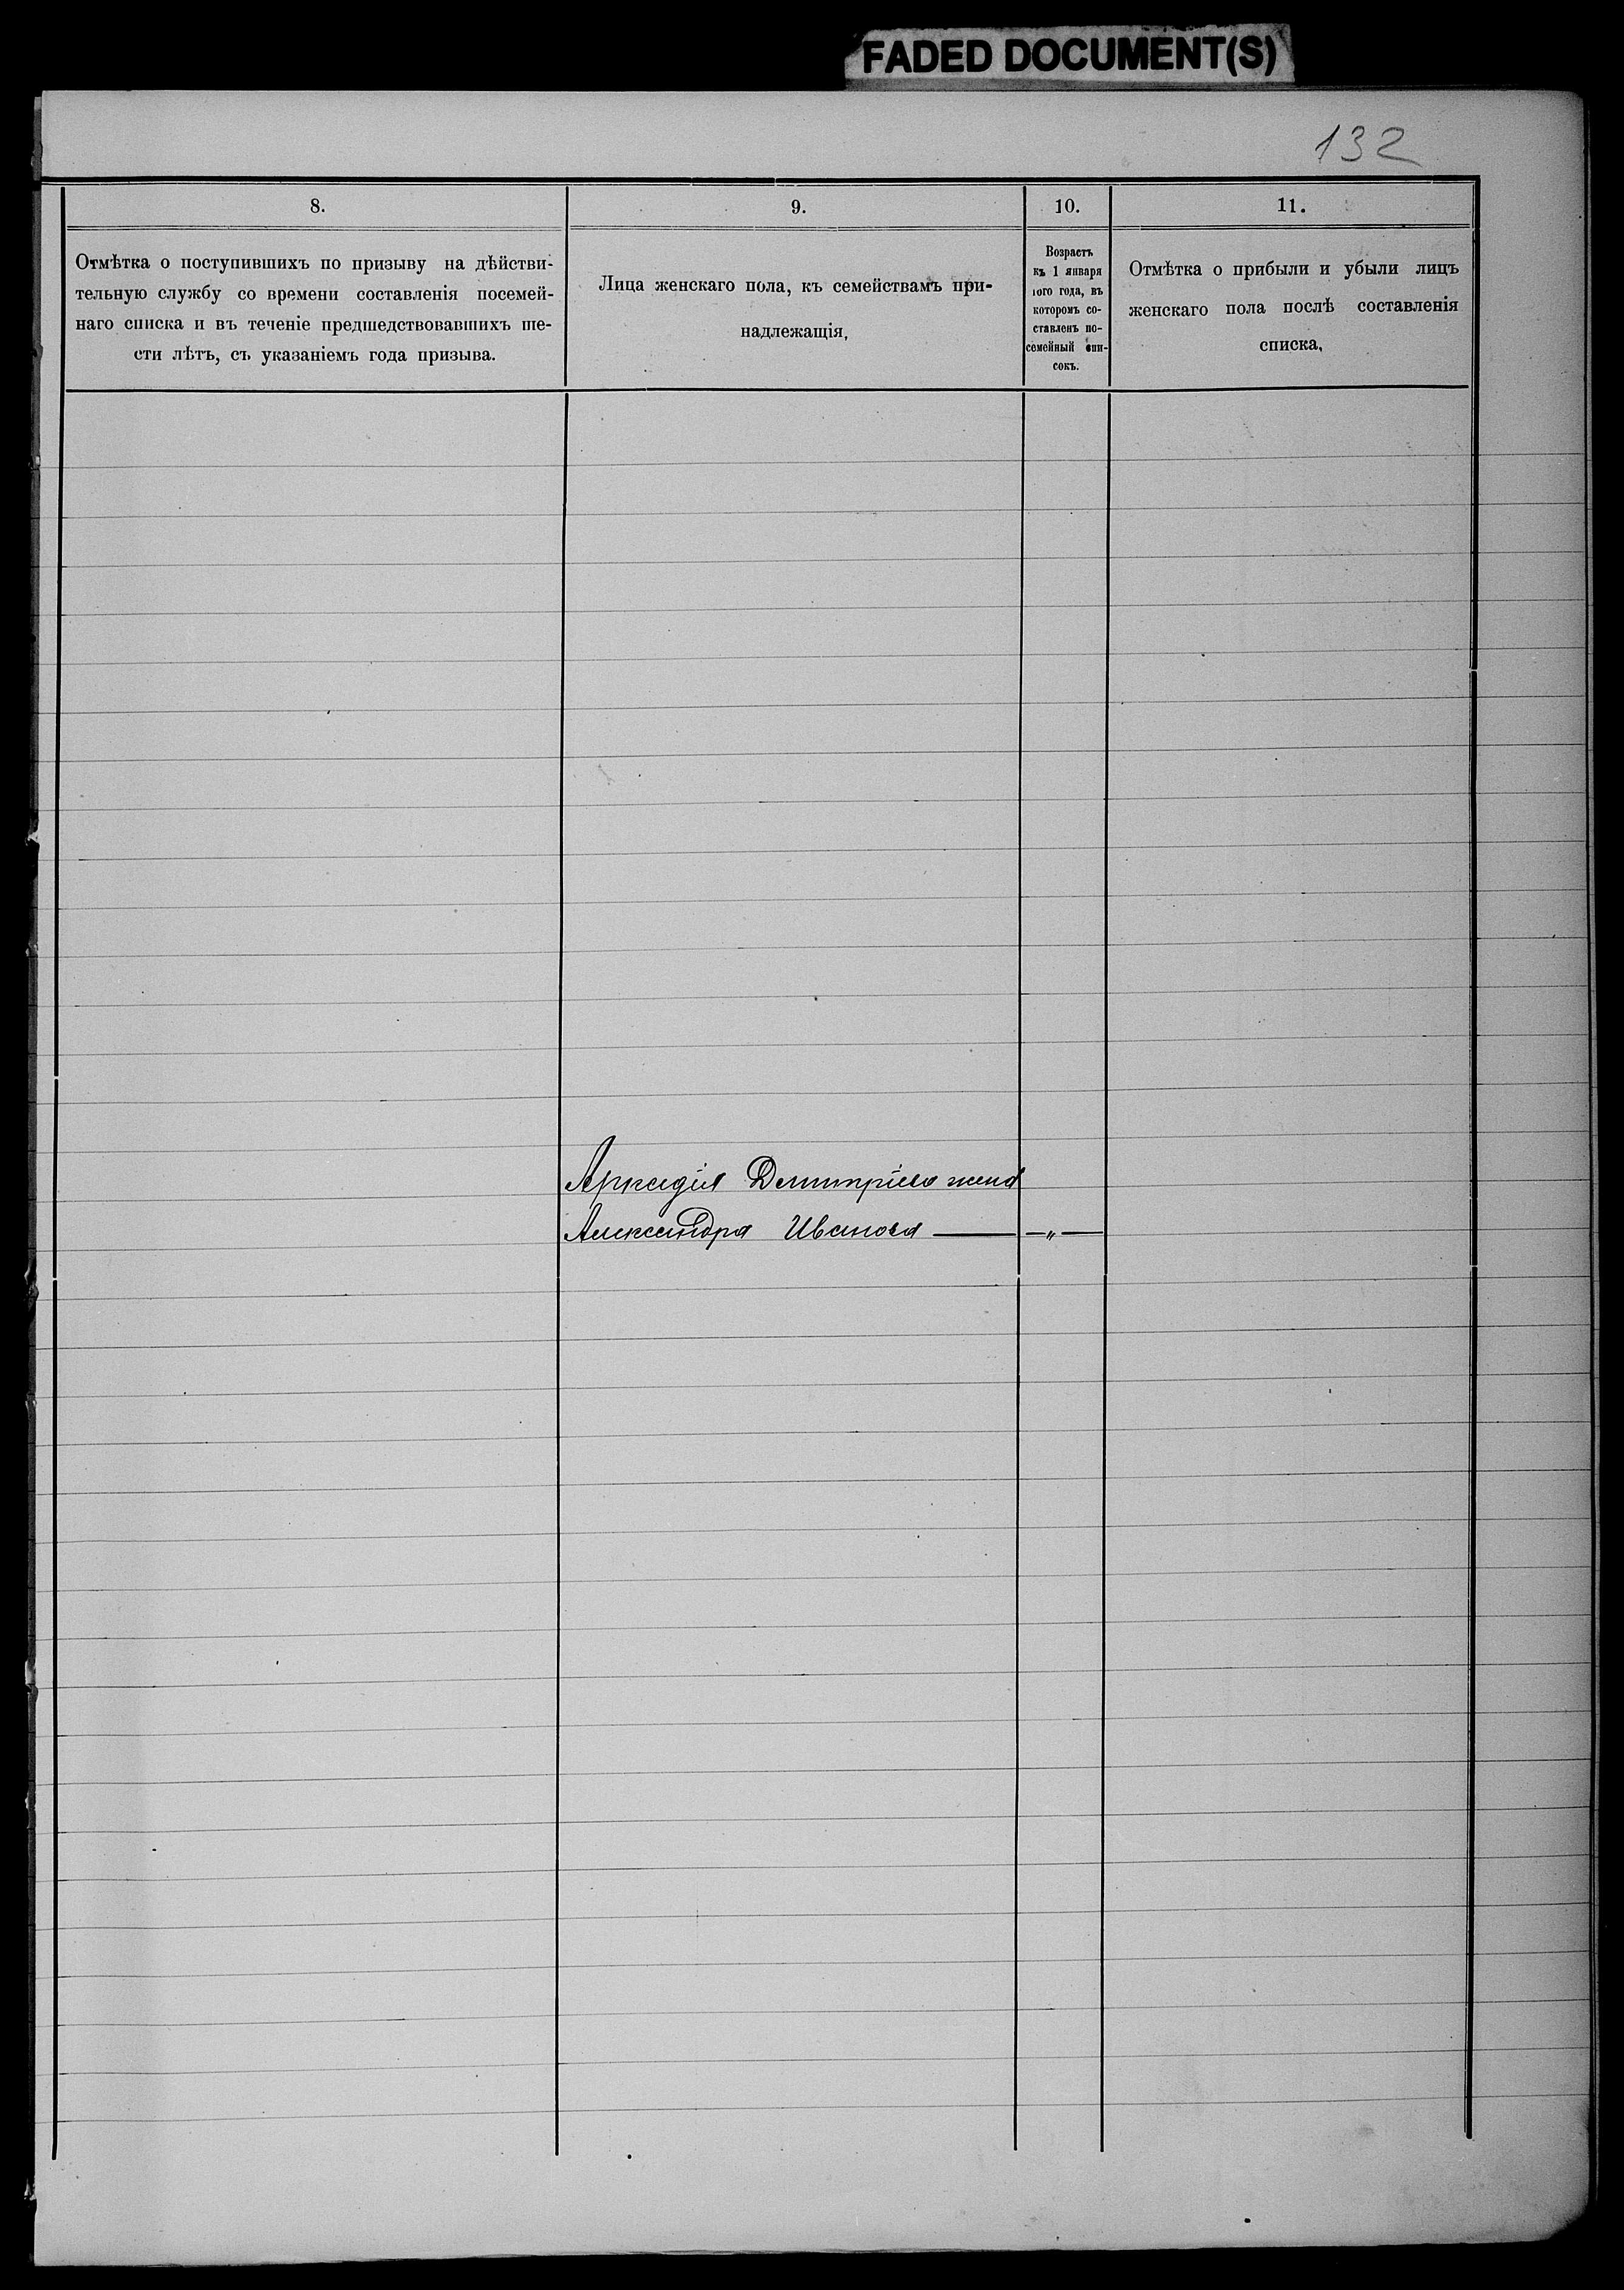 FADED DOCUMENT(S)
132
8.
Отмѣтка о поступившихъ по призыву на дѣйстви-
тельную службу со времени составленія посемей-
наго списка и въ теченіе предшедствовавшихъ ше-
сти лѣтъ, съ указаніемъ года призыва.
9.
Лица женскаго пола, къ семействамъ при-
надлежащія,
10.
Возрастъ
къ 1 января
того года, въ
которомъ со-
ставленъ по-
семейный спи-
сокъ.
11.
Отмѣтка о прибыли и убыли лицъ
женскаго пола послѣ составленія
списка,
Аркадія Дмитріева жена
Александра Иванова — — „ —